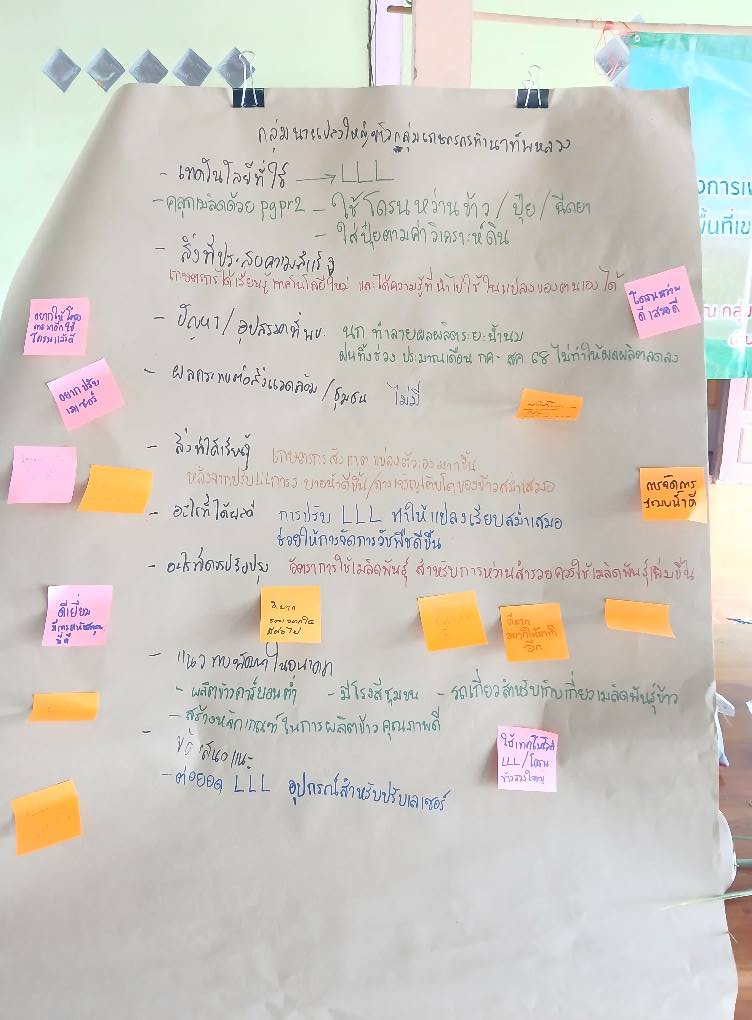 กลุ่มนาแปลงใหญ่ข้าวกลุ่มเกษตรกรทำนาทัพหลวง
- เทคโนโลยีที่ใช้ → LLL
- คลุกเมล็ดด้วย pgpr2 - ใช้โดรนหว่านข้าว / ปุ๋ย / ฉีดยา
- ใส่ปุ๋ยตามค่าวิเคราะห์ดิน
- สิ่งที่ประสบความสำเร็จ
เกษตรกรได้เรียนรู้เทคโนโลยีใหม่ และได้ความรู้ที่นำไปใช้ในแปลงของตนเองได้
- ปัญหา / อุปสรรคที่พบ นก ทำลายผลผลิตระยะน้ำนม
ฝนทิ้งช่วง ประมาณเดือน กค - สค 68 ไม่ทำให้ผลผลิตลดลง
- ผลกระทบต่อสิ่งแวดล้อม / ชุมชน ไม่มี
- สิ่งที่ได้เรียนรู้ เกษตรกรสังเกตแปลงตัวเองมากขึ้น
หลังจากปรับมีการระบายน้ำดีขึ้น / การเจริญเติบโตของข้าวสม่ำเสมอ
- อะไรที่ได้ผลดี การปรับ LLL ทำให้แปลงเรียบสม่ำเสมอ
ช่วยให้การจัดการวัชพืชดีขึ้น
- อะไรที่ควรปรับปรุง อัตราการใช้เมล็ดพันธุ์ สำหรับการหว่านสำรวยควรใช้เมล็ดพันธุ์เพิ่มขึ้น
- แนวทางพัฒนาในอนาคต
- ผลิตข้าวคาร์บอนต่ำ - มีโรงสีชุมชน - รถเกี่ยวสำหรับเก็บเกี่ยวเมล็ดพันธุ์ข้าว
- สร้างหลักเกณฑ์ในการผลิตข้าวคุณภาพดี
- ข้อเสนอแนะ
- ต่อยอด LLL อุปกรณ์สำหรับปรับเลเซอร์
โดรนหว่าน
ดีเสมอดี
อยากปรับ
เลเซอร์
การจัดการ
ระบบน้ำดี
ดีเยี่ยม
ใช้เทคโนโลยี
LLL / โดรน